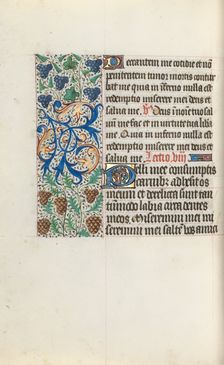 Peccantem me cotidie et non
penitentem timor mortis contur
bat me quia in inferno nulla est
redemptio miserere mei deus et
salua me. Deus in noīe tuo sal
uū me fac et in uirtute tua libera
me. Quia in inferno nulla est
redemptio miserere mei deus et
salua me. Lectio viij
Pelli mee consumptis
carnibz adhesit os
meum et derelicta sunt tan
tūmodo labia circa dentes
meos. Miseremini mei mi
seremini mei saltē vos amici